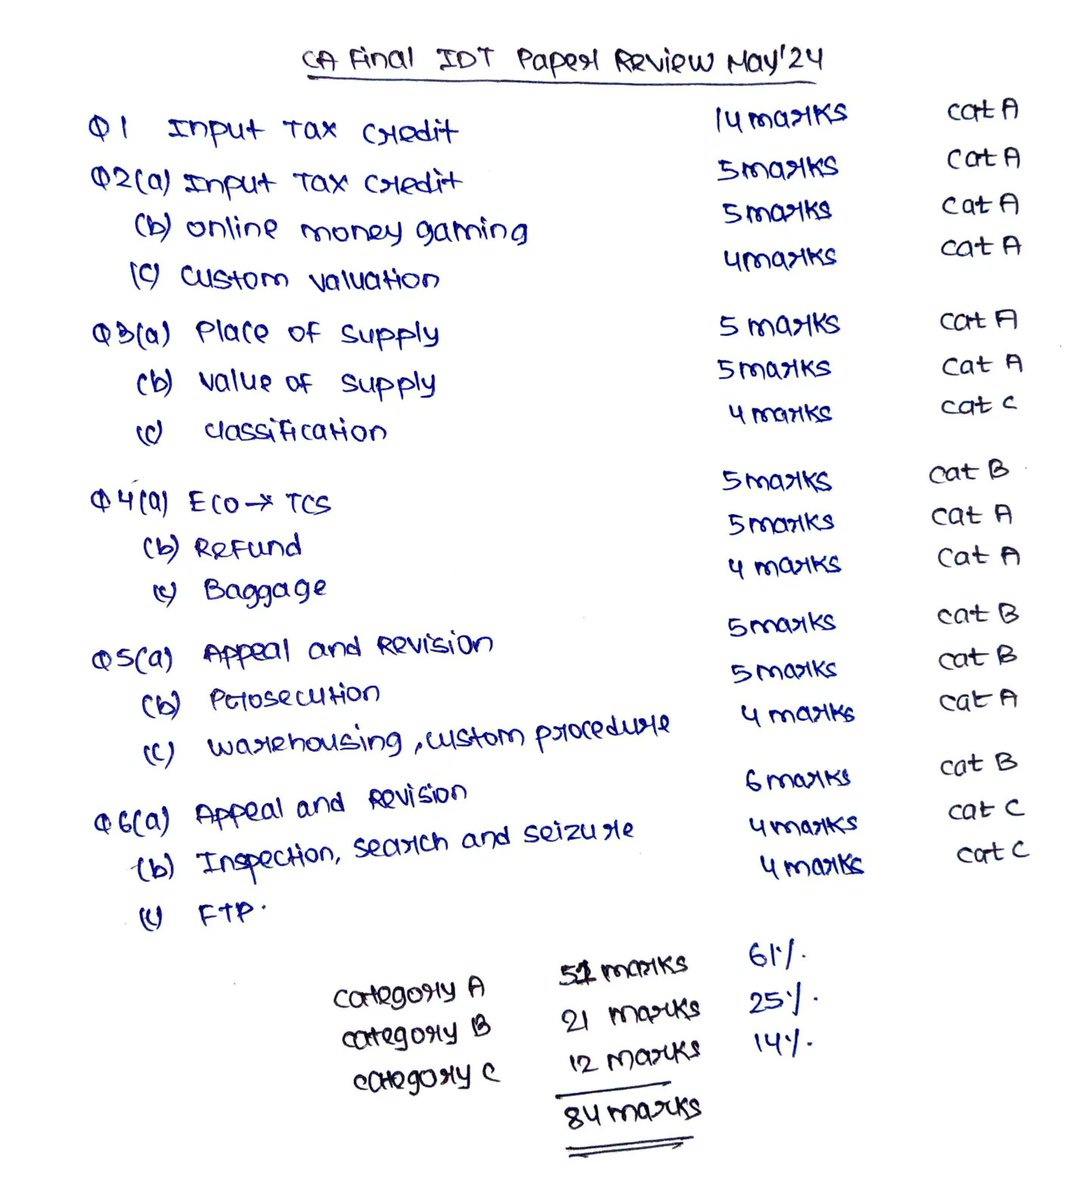 CA Final IDT Paper Review May'24
Q1 Input Tax Credit 14 marks Cat A
Q2(a) Input Tax Credit 5 marks Cat A
(b) online money gaming 5 marks Cat A
(c) custom valuation 4 marks Cat A
Q3(a) Place of supply 5 marks Cat A
(b) value of supply 5 marks Cat A
(c) classification 4 marks Cat C
Q4(a) ECO → TCS 5 marks Cat B
(b) Refund 5 marks Cat A
(c) Baggage 4 marks Cat A
Q5(a) Appeal and Revision 5 marks Cat B
(b) Prosecution 5 marks Cat B
(c) warehousing, custom procedure 4 marks Cat A
Q6(a) Appeal and Revision 6 marks Cat B
(b) Inspection, search and seizure 4 marks Cat C
(c) FTP. 4 marks Cat C
Category A 51 marks 61%.
Category B 21 marks 25%.
Category C 12 marks 14%.
84 marks